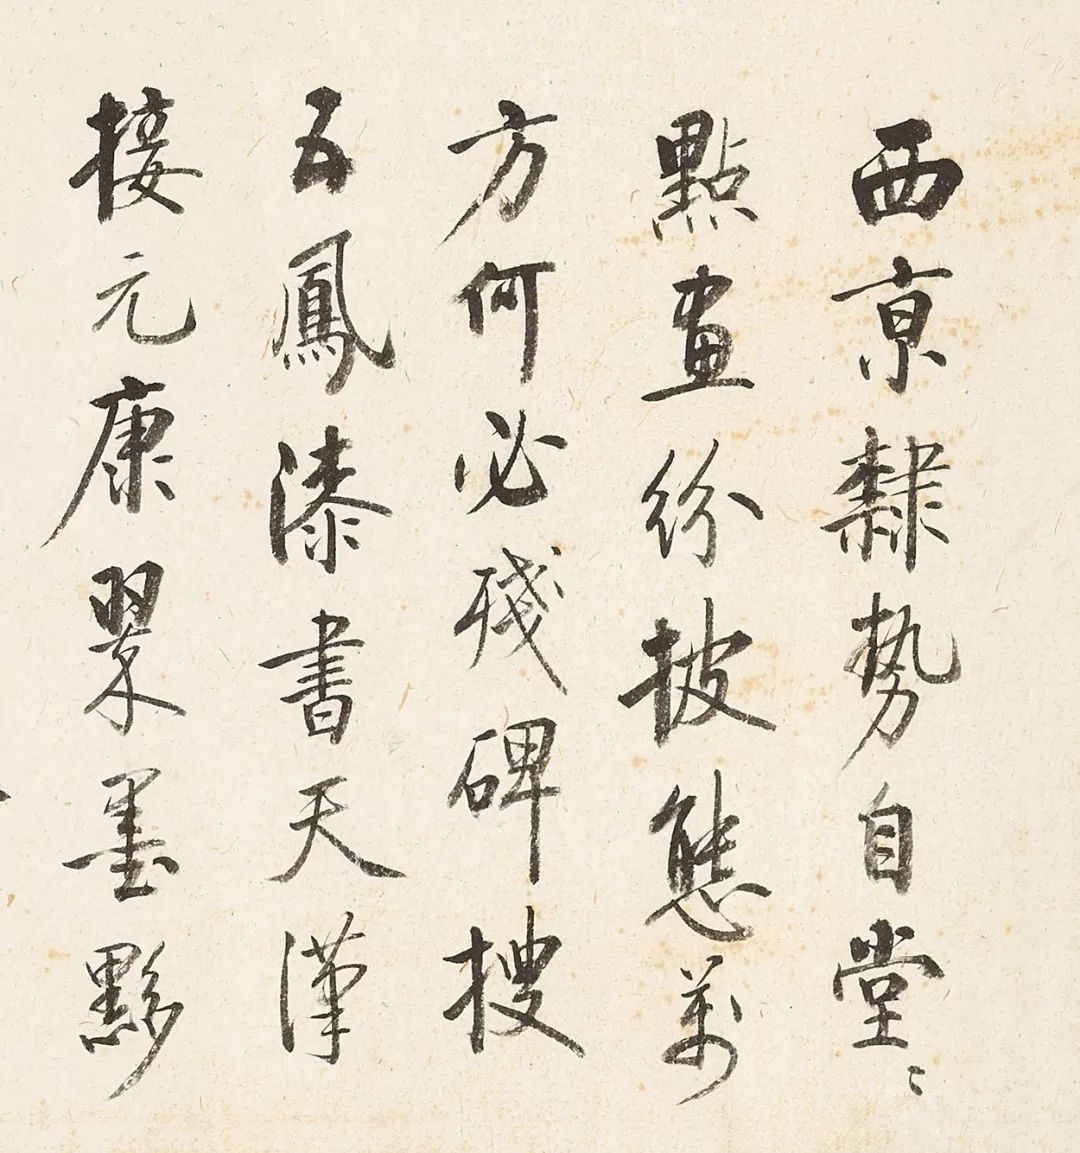 西京隸勢自堂〻
點畫紛披態萬
方何必殘碑搜
五鳳漆書天漢
接元康翠墨黟